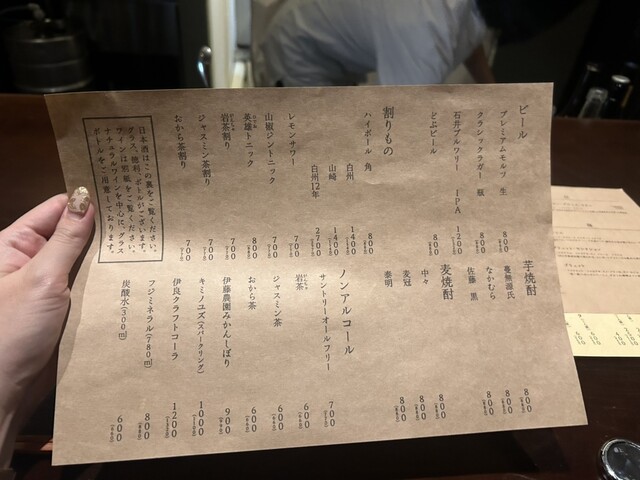 ビール
プレミアムモルツ 生 800
クラシックラガー 瓶 800
石井ブルワリー IPA 1200
どぶビール 800
割りもの
ハイボール 角 800
白州 1400
山崎 1400
白州12年 2700
レモンサワー 700
山椒ジントニック
英雄トニック 800
岩茶割り 700
ジャスミン茶割り 700
おから茶割り 700
日本酒はこの裏をご覧ください。
グラス、徳利、ボトルがございます。
ワインは別紙をご覧ください。
ナチュラルワインを中心に、グラス
ボトルをご用意しております。
芋焼酎
蔓無源氏 800
なかむら 800
佐藤 黒 800
麦焼酎
中々 800
麦冠 800
泰明 800
ノンアルコール
サントリーオールフリー 700
岩茶 600
ジャスミン茶 600
おから茶 600
伊藤農園みかんしぼり 900
キミノユズ(スパークリング) 1000
伊良クラフトコーラ 1200
フジミネラル(780ml) 800
炭酸水(300ml) 600